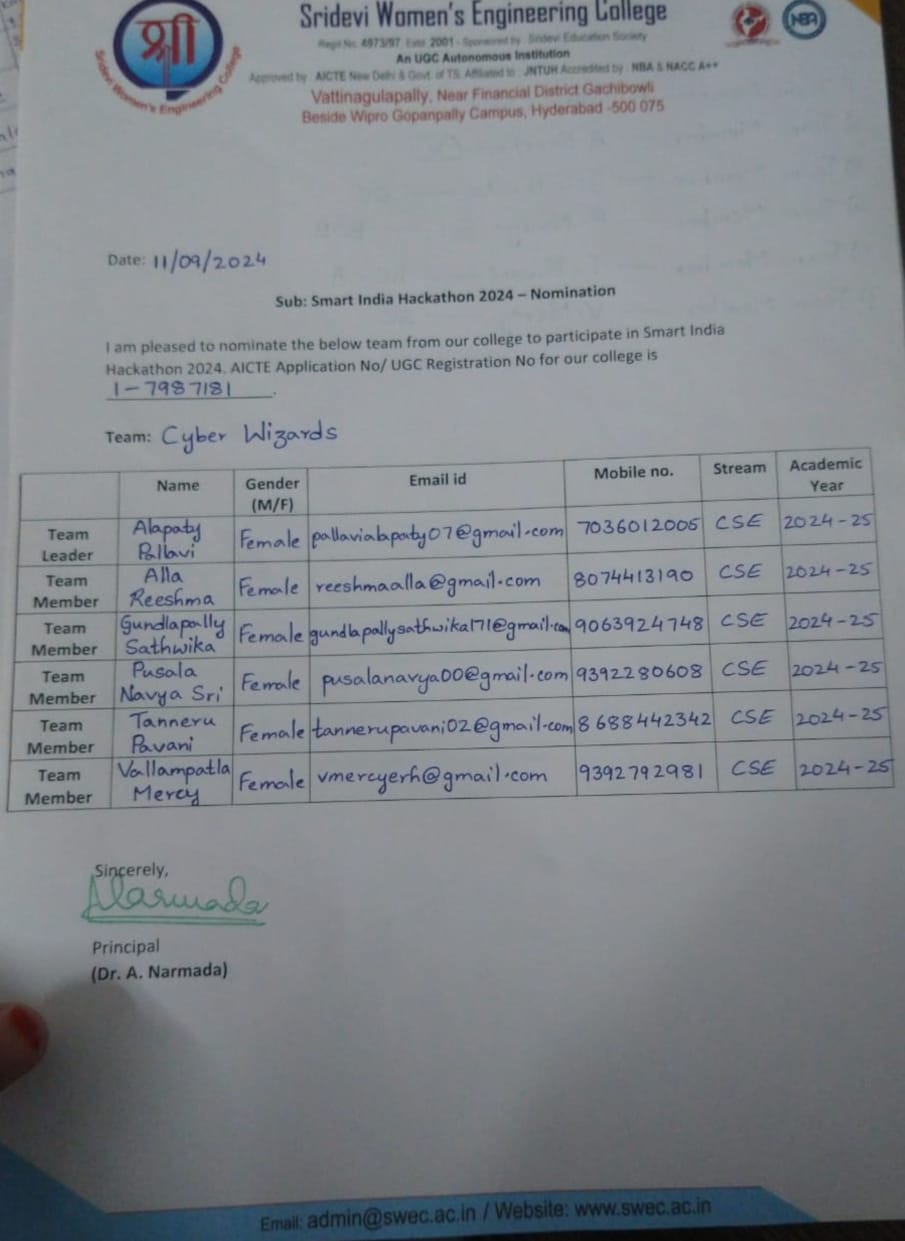 श्री
Sridevi Women's Engineering College
Sridevi Women's Engineering College
Regd No. 4973/97, Estd. 2001 - Sponsored by : Sridevi Education Society
An UGC Autonomous Institution
Approved by : AICTE New Delhi & Govt. of TS. Affiliated to : JNTUH Accredited by : NBA & NACC A++
Vattinagulapally, Near Financial District Gachibowli
Beside Wipro Gopanpally Campus, Hyderabad -500 075
NBA
Date: 11/09/2024
Sub: Smart India Hackathon 2024 – Nomination
I am pleased to nominate the below team from our college to participate in Smart India
Hackathon 2024. AICTE Application No/ UGC Registration No for our college is
1-7987181.
Team: Cyber Wizards
Name Gender (M/F) Email id Mobile no. Stream Academic Year
Team Leader Alapaty Pallavi Female pallavialapaty07@gmail.com 7036012005 CSE 2024-25
Team Member Alla Reeshma Female reeshmaalla@gmail.com 8074413190 CSE 2024-25
Team Member Gundlapally Sathwika Female gundlapallysathwika171@gmail.com 9063924748 CSE 2024-25
Team Member Pusala Navya Sri Female pusalanavya00@gmail.com 9392280608 CSE 2024-25
Team Member Tanneru Pavani Female tannerupavani02@gmail.com 8688442342 CSE 2024-25
Team Member Vallampatla Mercy Female vmercyerh@gmail.com 9392792981 CSE 2024-25
Sincerely,
Narmada
Principal
(Dr. A. Narmada)
Email: admin@swec.ac.in / Website: www.swec.ac.in